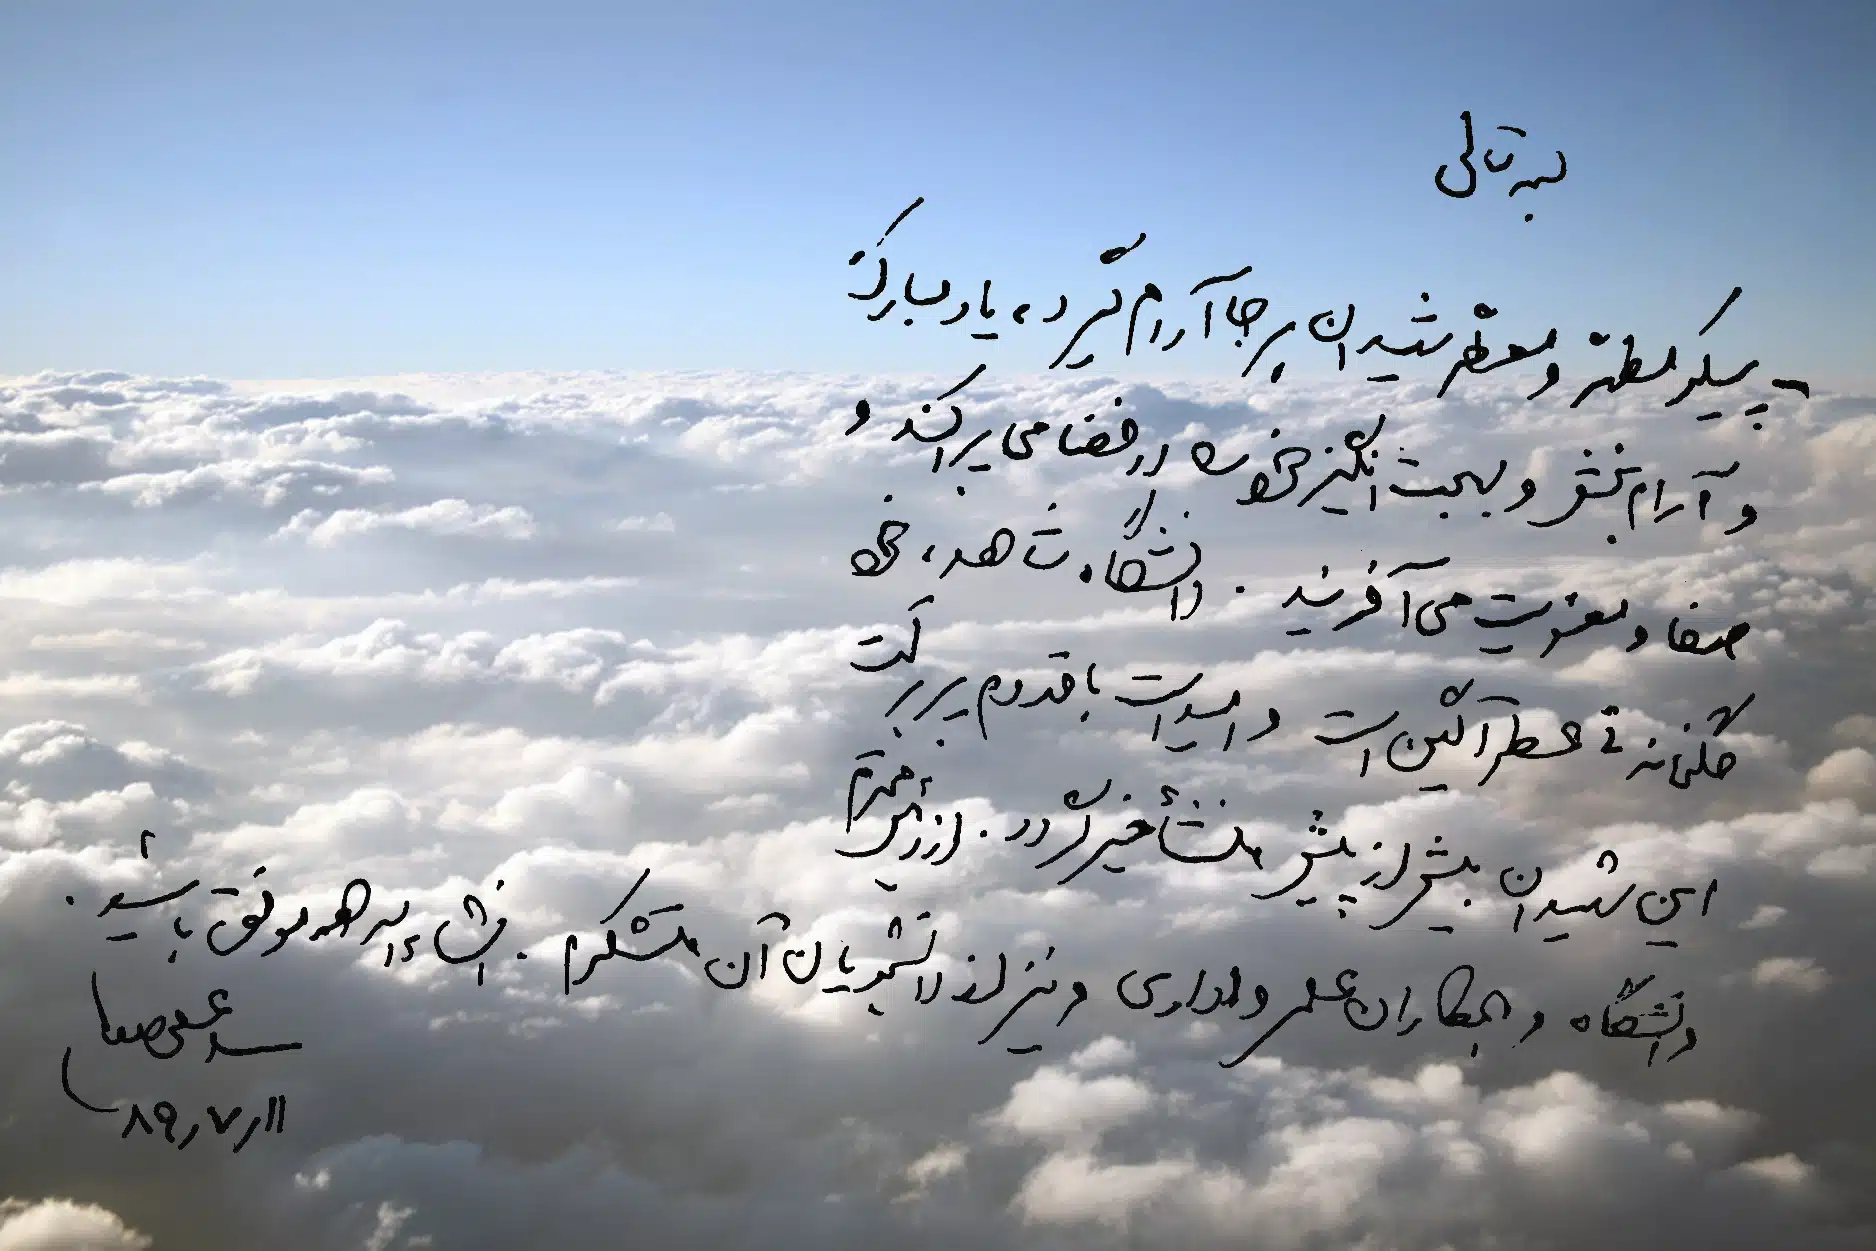 بسمه تعالی
- پیکر مطهر و معطر شهیدان بر جا آرام گیرد، یاد مبارک
و آرام بخش و بهجت انگیز خود در فضا می پراکند و
صفا و معنویت می آفریند. دانشگاه شاهد، خود
عطرآگین است و امید است با قدوم پر برکت
این شهیدان بیش از پیش منشأ خیر گردد. از رئیس محترم
دانشگاه و همکاران علمی و اداری و نیز از دانشجویان آن متشکرم. انشاءاله همه موفق باشید.
سید
۸۹٫۷٫۱۱